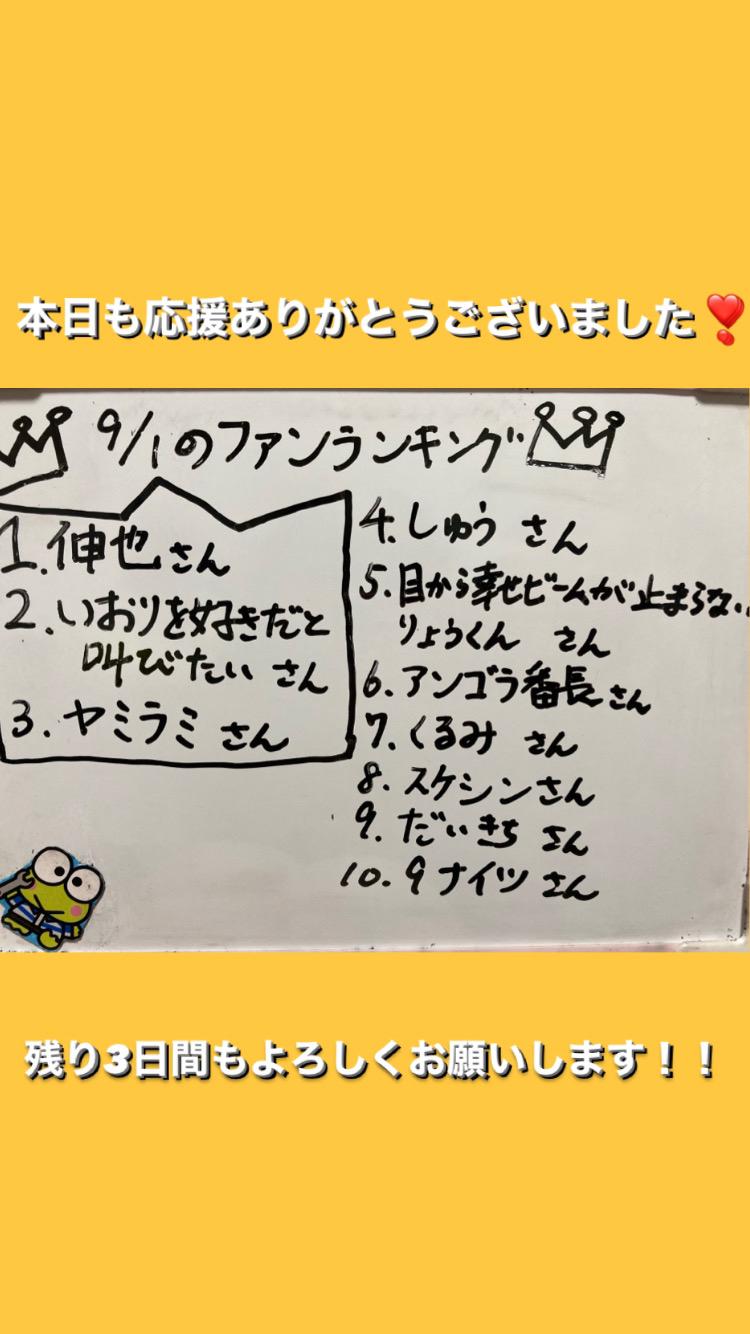 本日も応援ありがとうございました❣️
9/1のファンランキング
1.伸也さん
2.いおりを好きだと
叫びたい さん
3.ヤミラミ さん
4.しゅう さん
5.目から幸せビームが止まらない
りょうくん さん
6.アンゴラ番長さん
7.くるみ さん
8.スケシンさん
9.だいきち さん
10.9ナイツ さん
残り3日間もよろしくお願いします！！